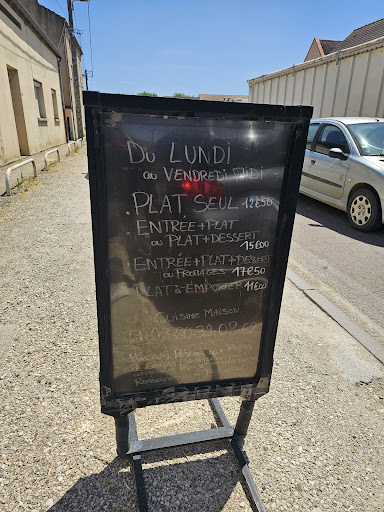 DU LUNDI
AU VENDREDI MIDI
PLAT SEUL 12€50
ENTRÉE+PLAT
OU PLAT+DESSERT
15€00
ENTRÉE+PLAT+DESSERT
OU FROMAGES 17€50
PLAT à EMPORTER 11€00
CUISINE MAISON